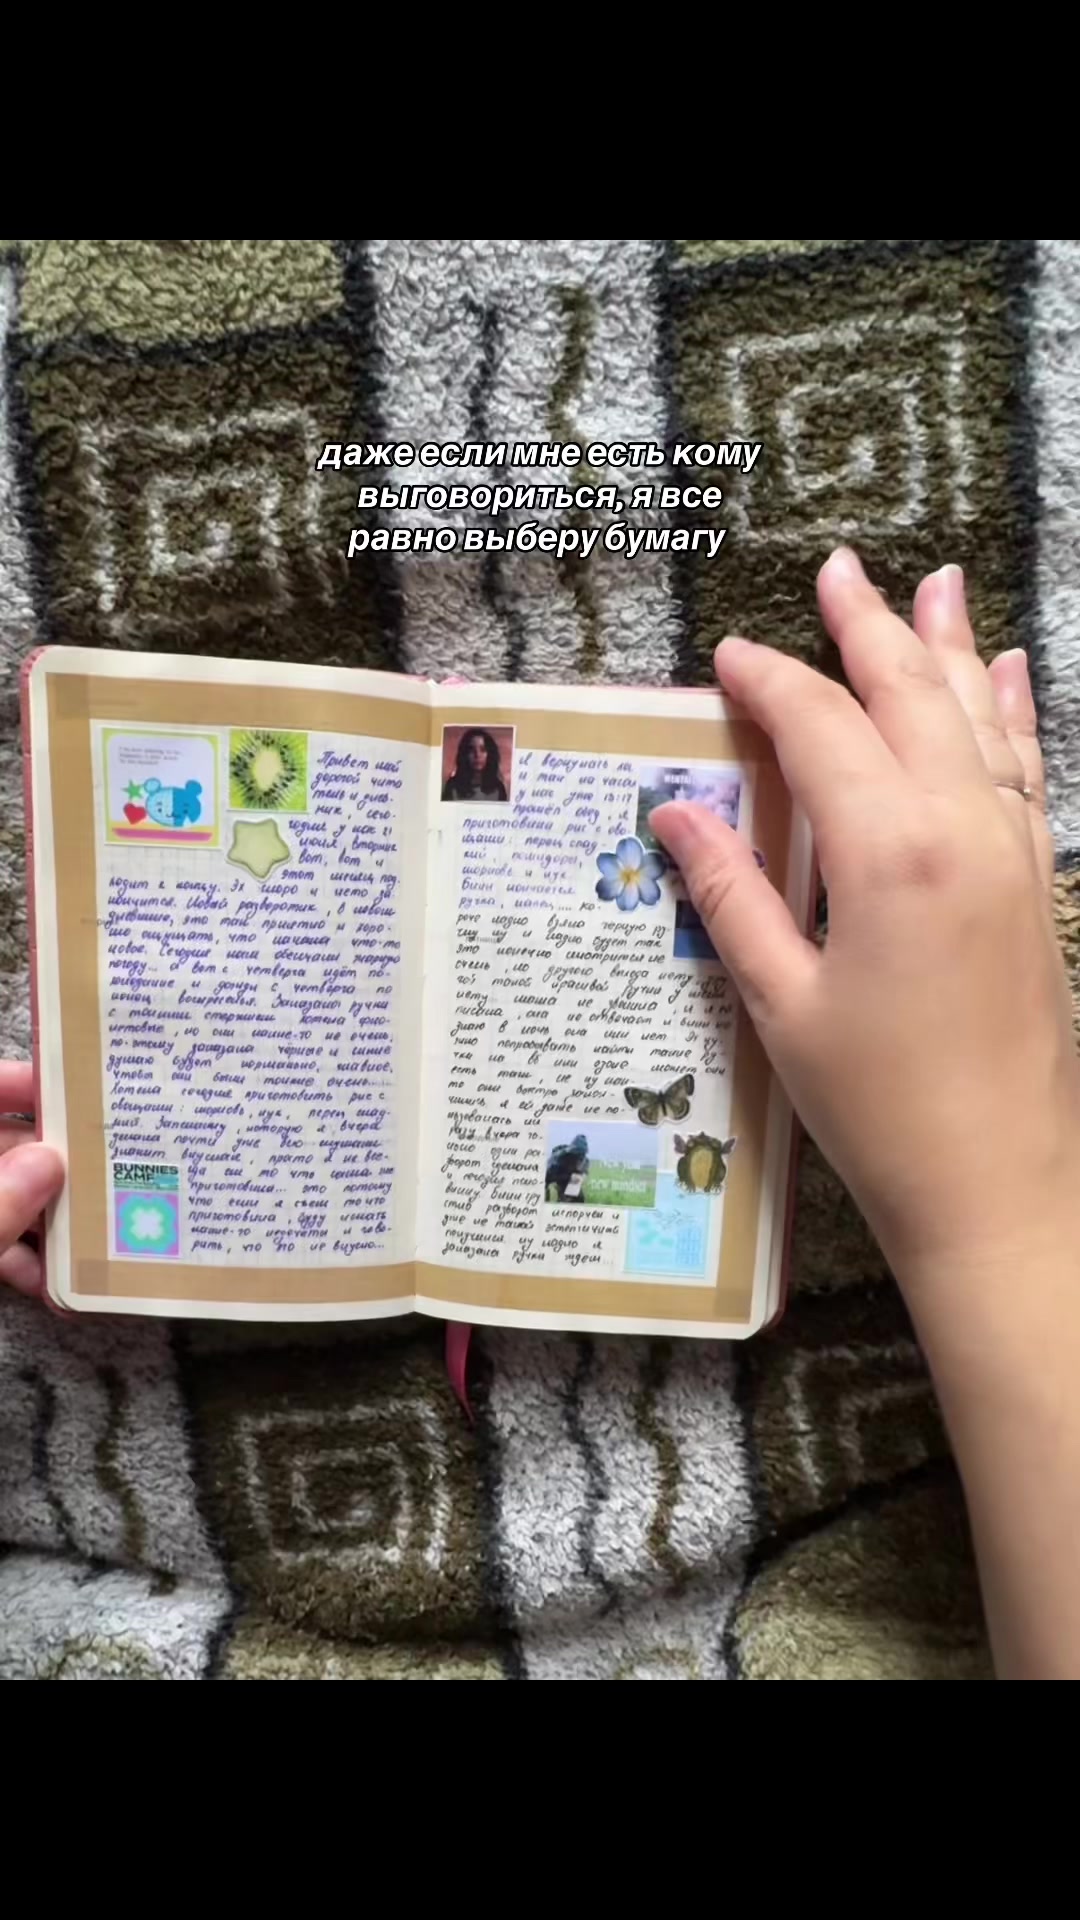 даже если мне есть кому
выговориться, я все
равно выберу бумагу
Привет мой
дорогой чита
тель и днев-
ник, сего-
годня у нас 21
июля вторник
вот, вот и
этот месяц под
ходит к концу. Эх скоро и лето за
кончится. Новый разворотик, в новом
дневнике, это так приятно и хоро-
шо ощущать, что начала что-то
новое. Сегодня нам обещали жаркую
погоду... а вот с четверга идёт по-
холодание и дожди с четверга по
конец воскресенья. Заказала ручки
с такими стержнем хотела фио-
летовые, но они какие-то не очень,
по-этому заказала чёрные и синие
думаю будет нормально, главное,
чтобы они были тонкие очень.....
Хотела сегодня приготовить рис с
овощами: морковь, лук, перец слад-
кий. Запеканку, которую я вчера
делала почти уже всю скушали
значит вкусная, прато я не все-
гда ем то что сама же
приготовила... это потому
что если я съем то что
приготовила, буду искать
какие-то недочёты и гово-
рить, что это не вкусно...
BUNNIES
CAMP
Я вернулась ла
и так на часах
у нас уже 13:17
прошёл обед, я
приготовила рис с ово-
щами: перец слад-
кий, помидоры,
морковь и лук.
Блин кончается
ручка, капец.... ко-
роче ладно взяла черную ру-
чку ну и ладно будет так
это конечно смотрится не
очень, но другого выхода нету,
такой красивой ручки у меня
нету мама не вышла, и я по
писала, она не отвечает и блин не
знаю в ночь она или нет. Эх ну-
жно попробовать найти такие ру-
чки на вб или озоне может они
есть там, не ну как-
то они быстро закон-
чились я ей даже не по-
разу вчера то-
лько один ра-
зворот сделала
и сегодня поло-
вину. Блин гру
стно разворот испорчен и
уже не такой эстетичный
получился. ну ладно я
заказала ручки ждем...
New year
new mindset